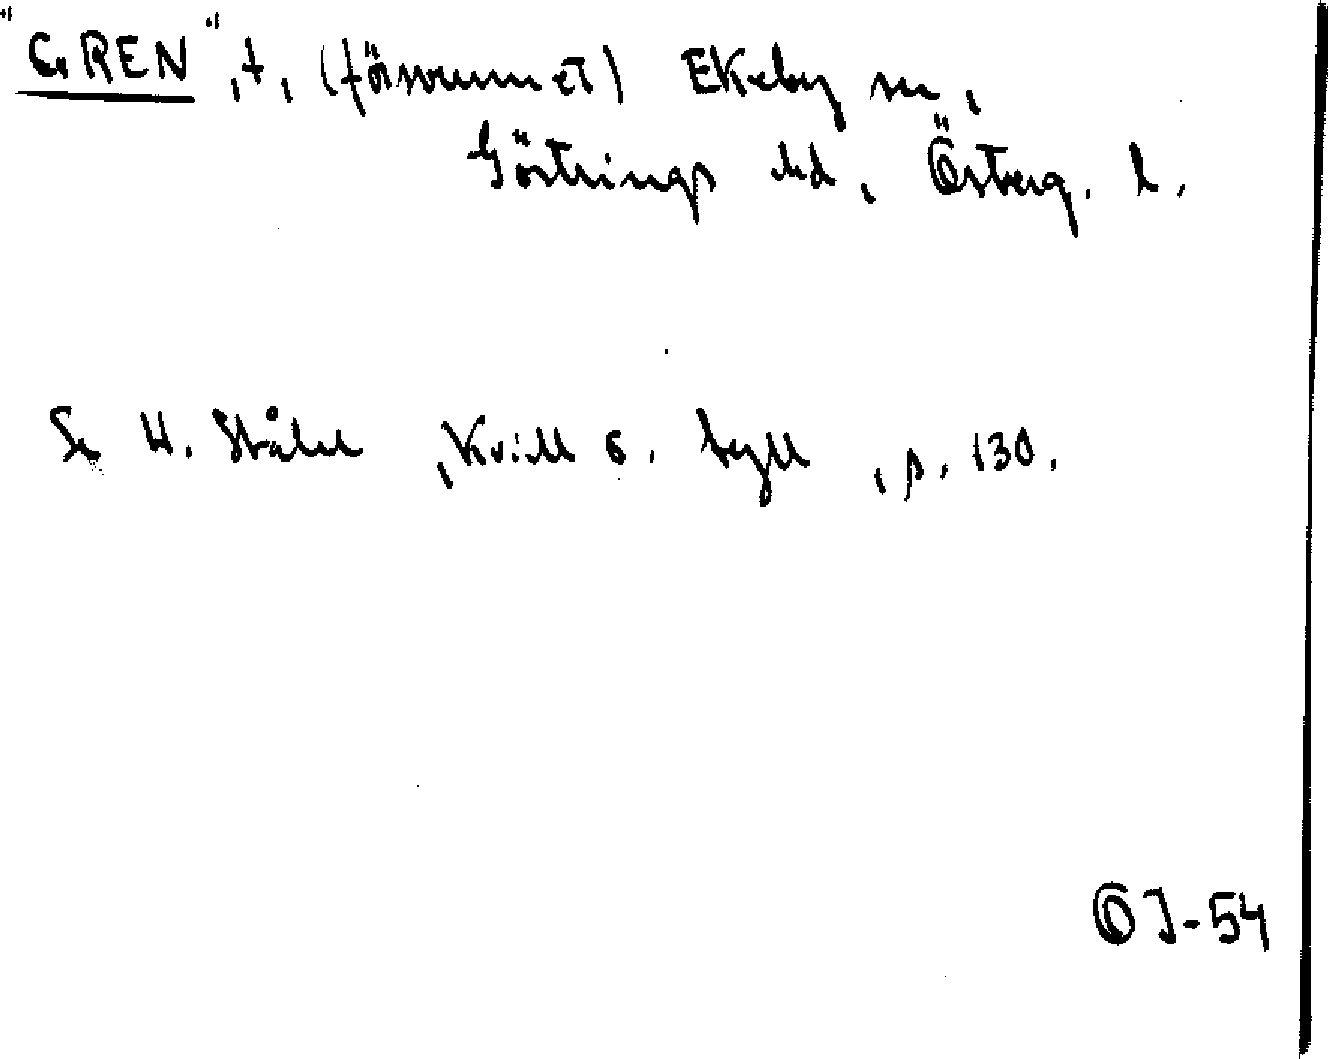 "GREN", t, (försvunnet) Ekeby sn,
Göstrings hd, Österg. l.
Se H. Ståhl, Kvill o. tyll, s. 130.
OJ-54